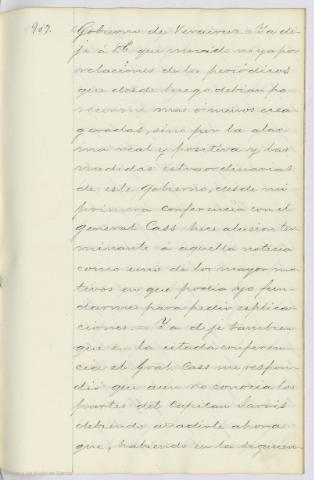 907.
Gobierno de Veracruz. Ya di-
je á V.E. que movido no ya por
relaciones de los periódicos
que desde luego debian pa-
recerme mas ó menos exa-
geradas, sino por la alar-
ma real y positiva y las
medidas estraordinarias
de este Gobierno, desde mi
primera conferencia con el
general Cass hice alusion ter-
minante á aquella noticia
como uno de los mayores mo-
tivos en que podia yo fun-
darme para pedir esplica-
ciones. Ya dije tambien
que en la citada conferen-
cia el Gral Cass me respon-
dió que aun no conocia los
partes del Capitan Jarvis
debiendo añadirle ahora
que, habiendo en la siguien-